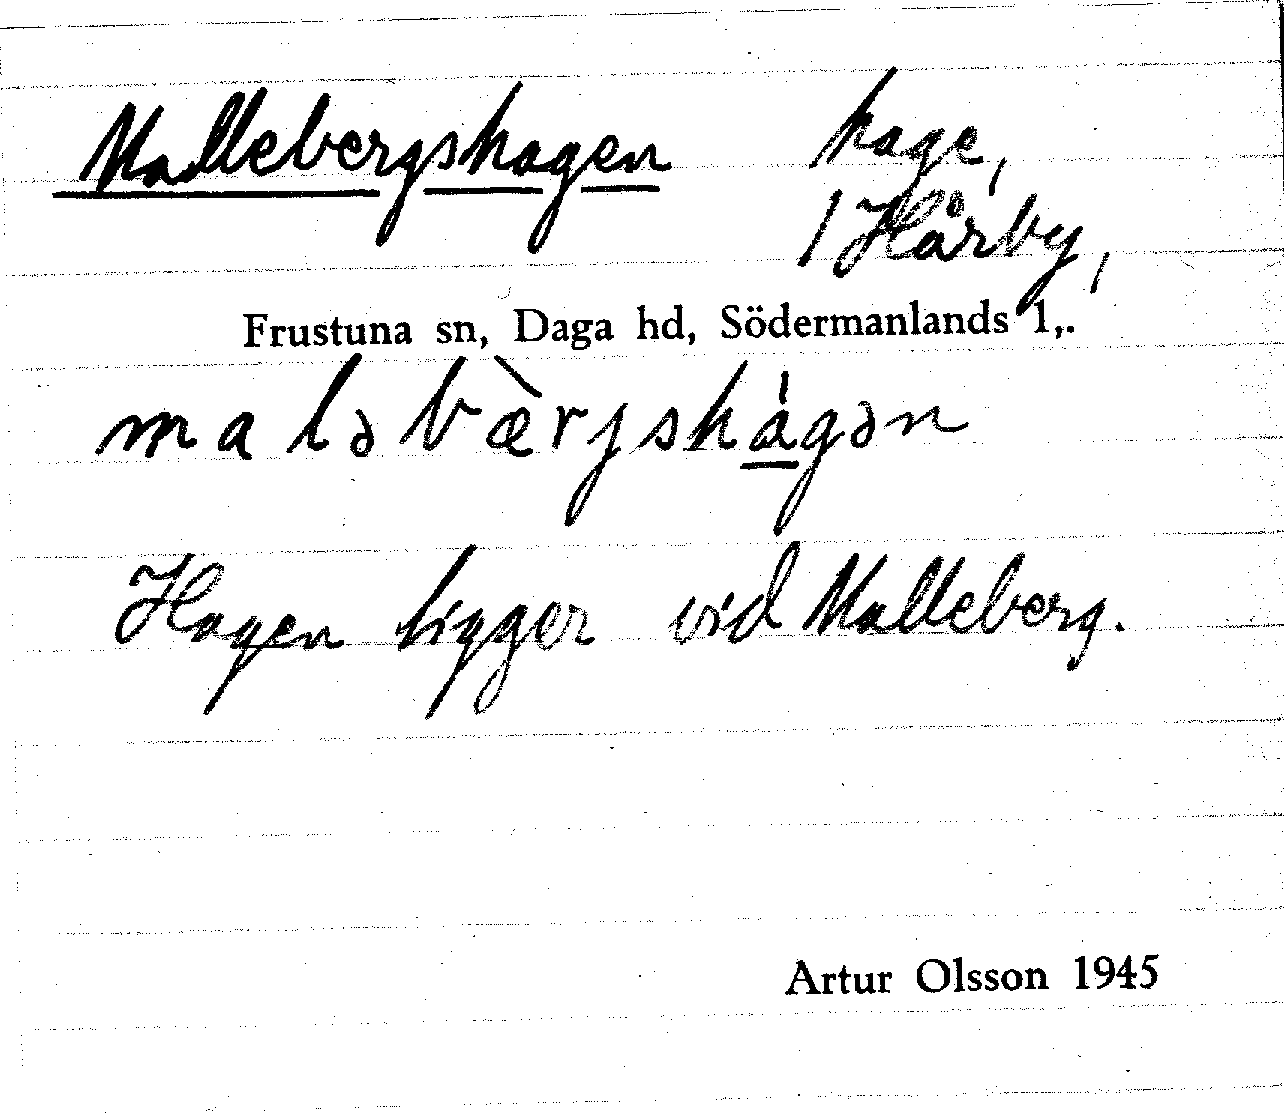 Mallebergshagen hage,
1 Hårby,
Frustuna sn, Daga hd, Södermanlands l,.
maləbæ̀rjshágən
Hagen ligger vid Malleberg.
Artur Olsson 1945